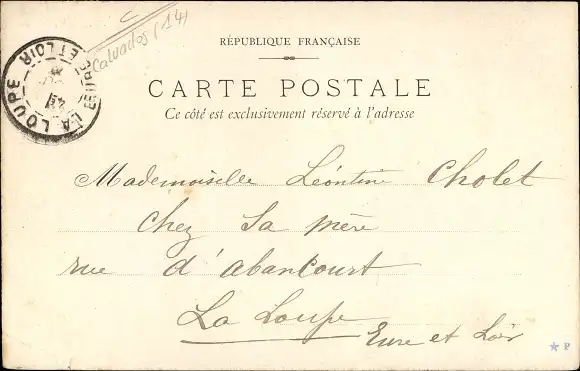 Calvados (14)
LA LOUPE
EURE ET LOIR
RÉPUBLIQUE FRANÇAISE
CARTE POSTALE
Ce côté est exclusivement réservé à l'adresse
Mademoiselle Léontine Cholet
chez Sa mère
rue d'abancourt
La Loupe
Eure et Loir